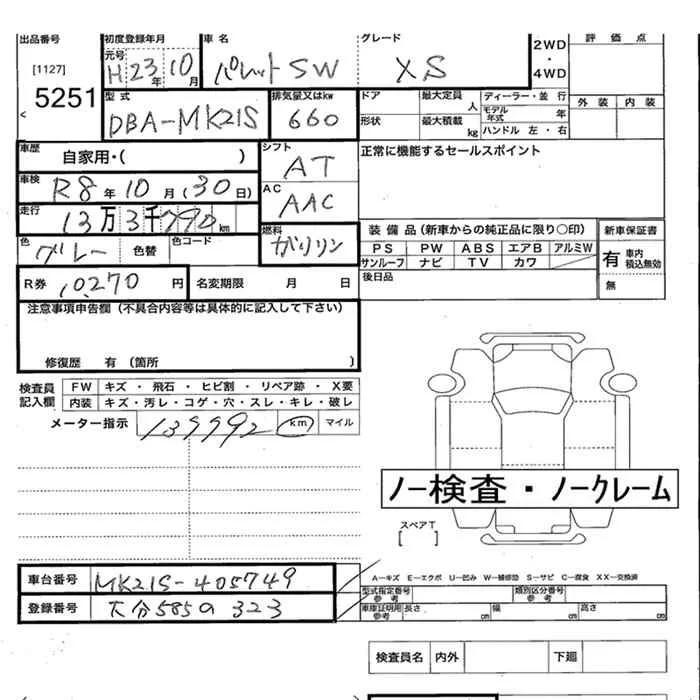 出品番号 初度登録年月 車名 グレード 2WD・4WD 評価点
[1127] 元号 H23年10月 パレットSW XS
5251 型式 排気量又はkw ドア 最大定員 人 ディーラー・並行 外装 内装
DBA-MK21S 660 形状 最大積載 kg モデル年式 年 ハンドル 左・右
車歴 自家用・( ) シフト AT 正常に機能するセールスポイント
車検 R8年10月(30日) AC AAC
走行 13万3千790km 燃料 ガソリン 装備品(新車からの純正品に限り○印) 新車保証書
色 グレー 色替 色コード PS PW ABS エアB アルミW 有 車内積込無効
サンルーフ ナビ TV カワ
R券 10270円 名変期限 月 日 後日品 無
注意事項申告欄(不具合内容等は具体的に記入して下さい)
修復歴 有(箇所 )
検査員記入欄 FW キズ・飛石・ヒビ割・リペア跡・X要
内装 キズ・汚レ・コゲ・穴・スレ・キレ・破レ
メーター指示 139992 km マイル
ノー検査・ノークレーム
スペアT
[ ]
車台番号 MK21S-405749
A-キズ E-エクボ U-凹み W-補修跡 S-サビ C-腐食 XX-交換済
型式指定番号参考 類別区分番号参考
登録番号 大分585の323 車庫証明用参考 長さ cm 幅 cm 高さ cm
検査員名 内外 下廻